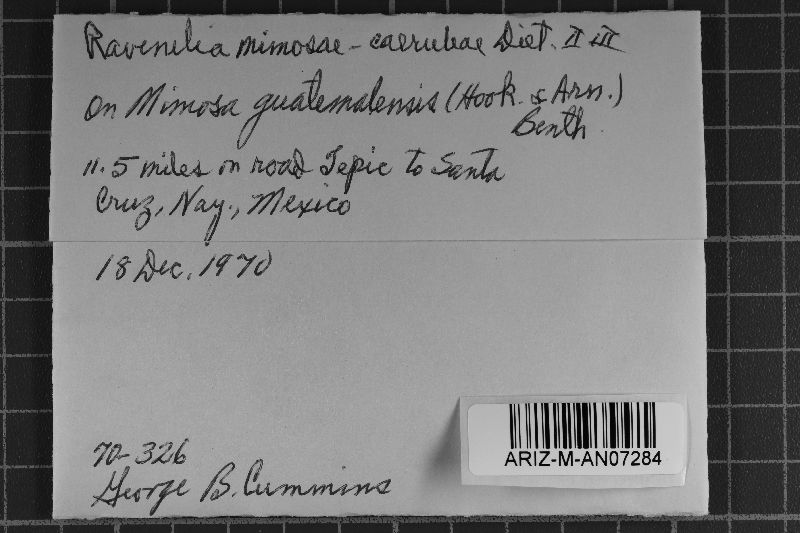 Ravenelia mimosae-caerubae Diet. II III
On Mimosa guatemalensis (Hook. & Arn.)
Benth.
11.5 miles on road Tepic to Santa
Cruz, Nay., Mexico
18 Dec. 1970
70-326
George B. Cummins
ARIZ-M-AN07284